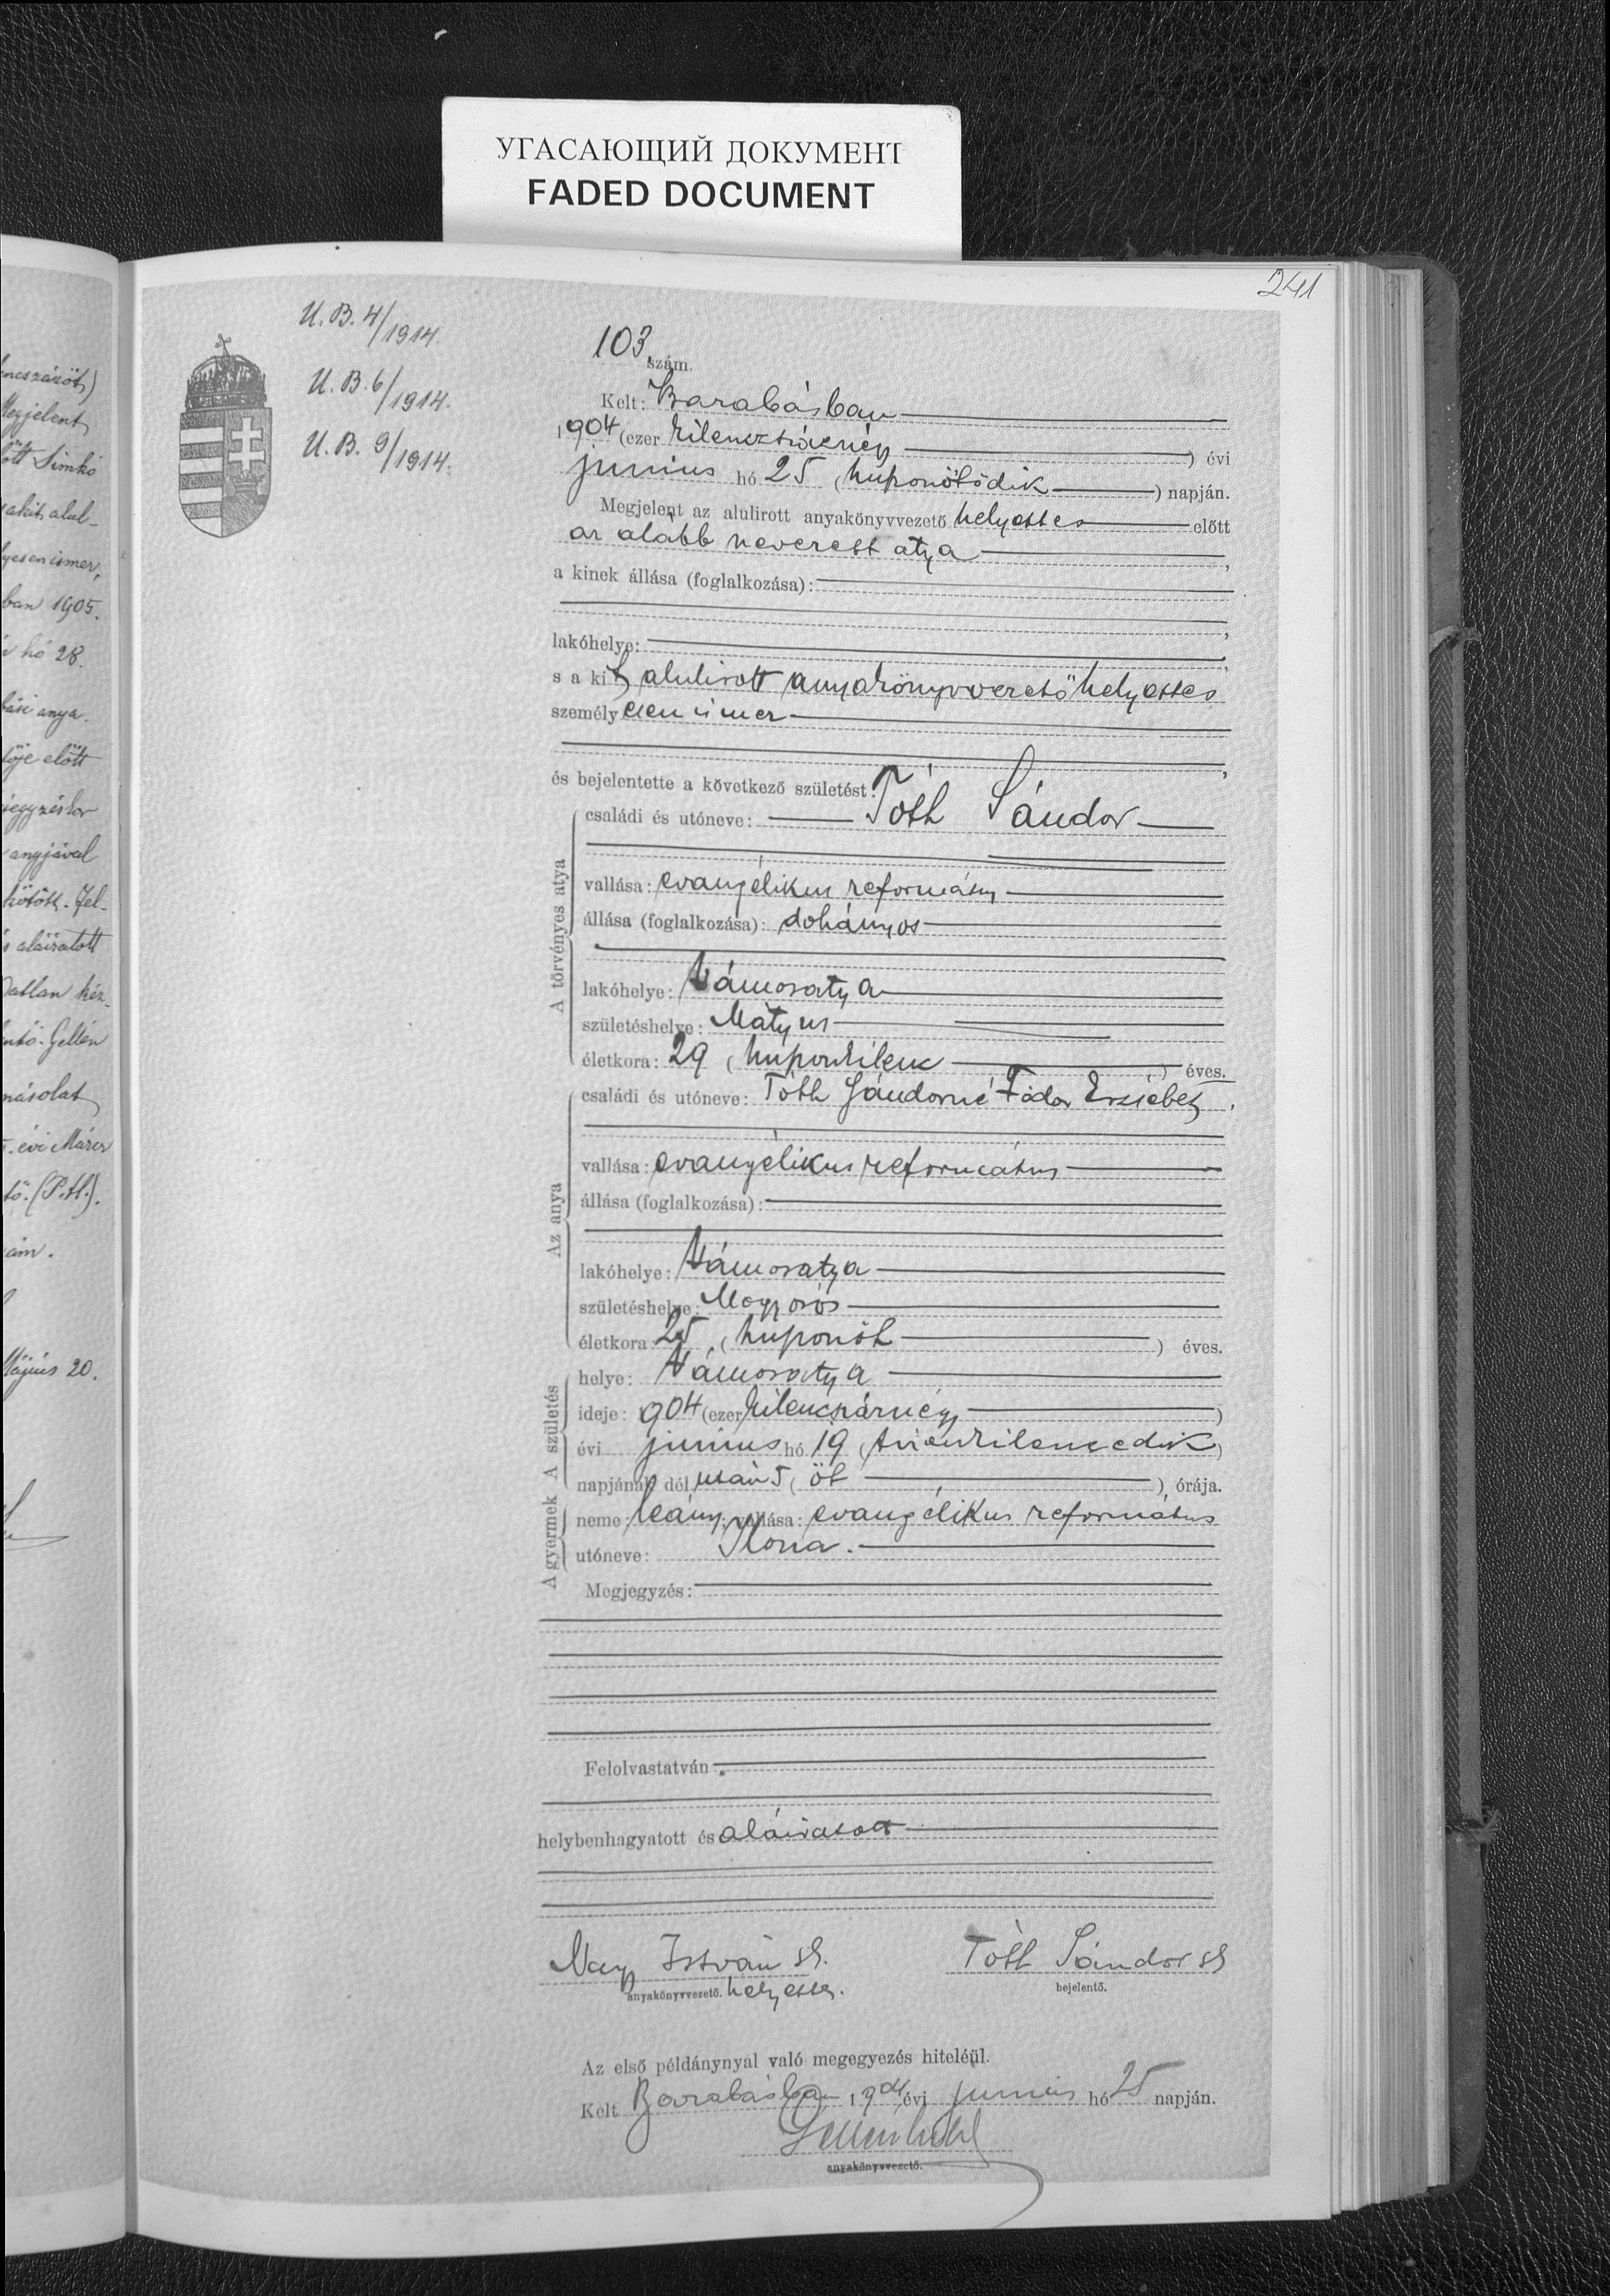 УГАСАЮЩИЙ ДОКУМЕНТ
FADED DOCUMENT
241
U. B. 4/1914.
U. B. 6/1914.
U. B. 9/1914.
103 szám.
Kelt: Barabásban
1904 (ezer kilencszáznégy ) évi
junius hó 25 (huszonötödik ) napján.
Megjelent az alulirott anyakönyvvezető helyettes előtt
az alább nevezett atya ,
a kinek állása (foglalkozása):
lakóhelye:
s a kit alulirott anyakönyvvezető helyettes
személyesen ismer
és bejelentette a következő születést:
A törvényes atya
családi és utóneve: Tóth Sándor
vallása: evangélikus református
állása (foglalkozása): dohányos
lakóhelye: Vámosatya
születéshelye: Mátyus
életkora: 29 (huszonkilenc ) éves.
Az anya
családi és utóneve: Tóth Sándorné Fodor Erzsébet,
vallása: evangélikus református
állása (foglalkozása):
lakóhelye: Vámosatya
születéshelye: Mogyorós
életkora: 25 (huszonöt ) éves.
A születés
helye: Vámosatya
ideje: 904 (ezer kilencszáznégy )
évi junius hó 19 (tizenkilencedik)
napjának dél után 5 (öt ) órája.
A gyermek
neme: leány; vallása: evangélikus református
utóneve: Ilona.
Megjegyzés:
Felolvastatván
helybenhagyatott és aláiratott
Nagy István sk. Tóth Sándor sk
anyakönyvvezető. helyettes. bejelentő.
Az első példánynyal való megegyezés hiteléül.
Kelt Barabásban 1904 évi junius hó 25 napján.
anyakönyvvezető.
Megjelent
ött Simkó
yesen ismer,
ban 1905.
hó 28.
anya-
tője előtt
angyával
kötött. Fel-
aláiratott
kéz-
Gellén
másolat
évi Márcz
tő. (P.H.).
Május 20.